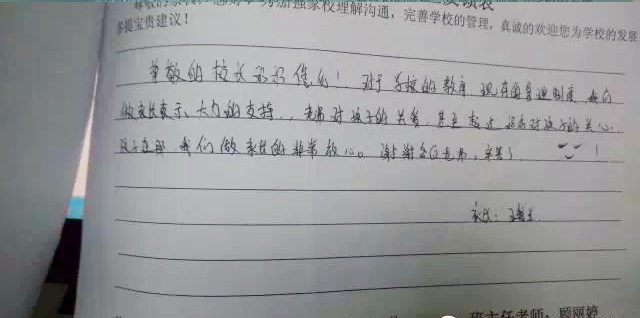 加强家校理解沟通，完善学校的管理，真诚的欢迎您为学校的发展
多提宝贵建议！
尊敬的校长 您们！对于学校的教育 现有的管理制度 我们
做家长表示大力的支持，老师对孩子的关爱，甚至超过 对孩子的关心
孩子在那 我们做家长的非常放心。谢谢各位老师，辛苦了！
家长：
班主任老师：顾丽婷